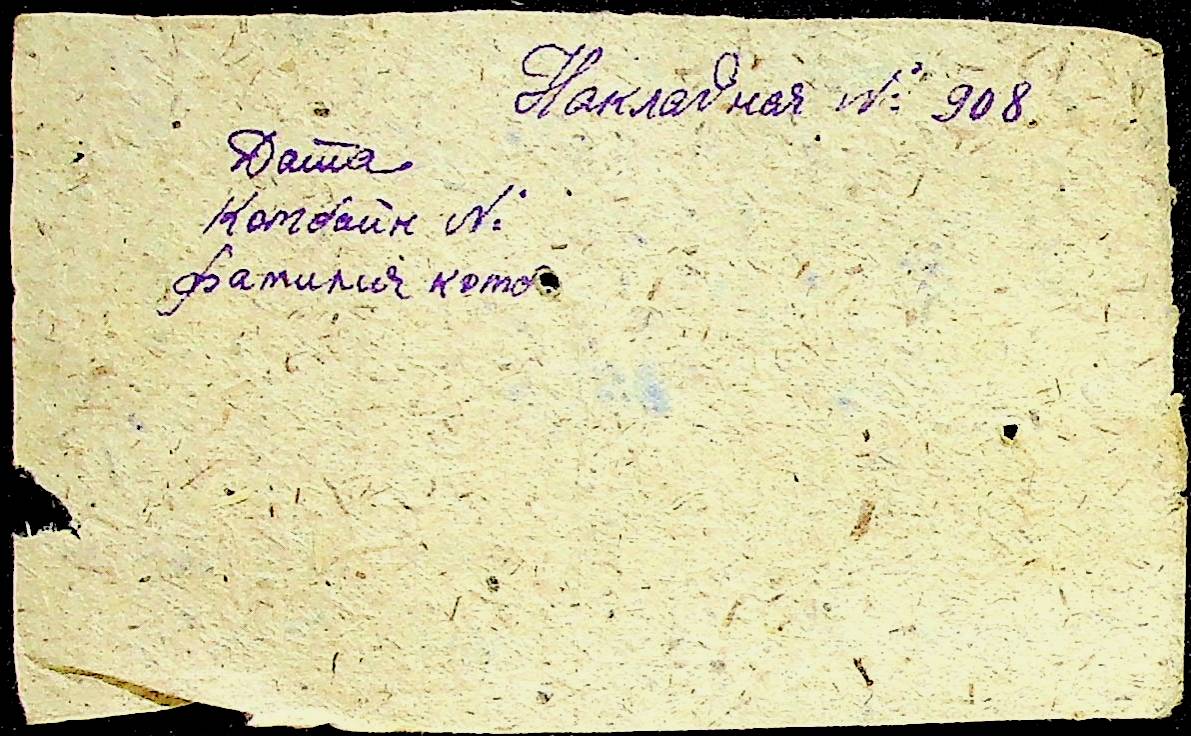 Накладная № 908.
Дата
Комбайн №
Фамилия комб